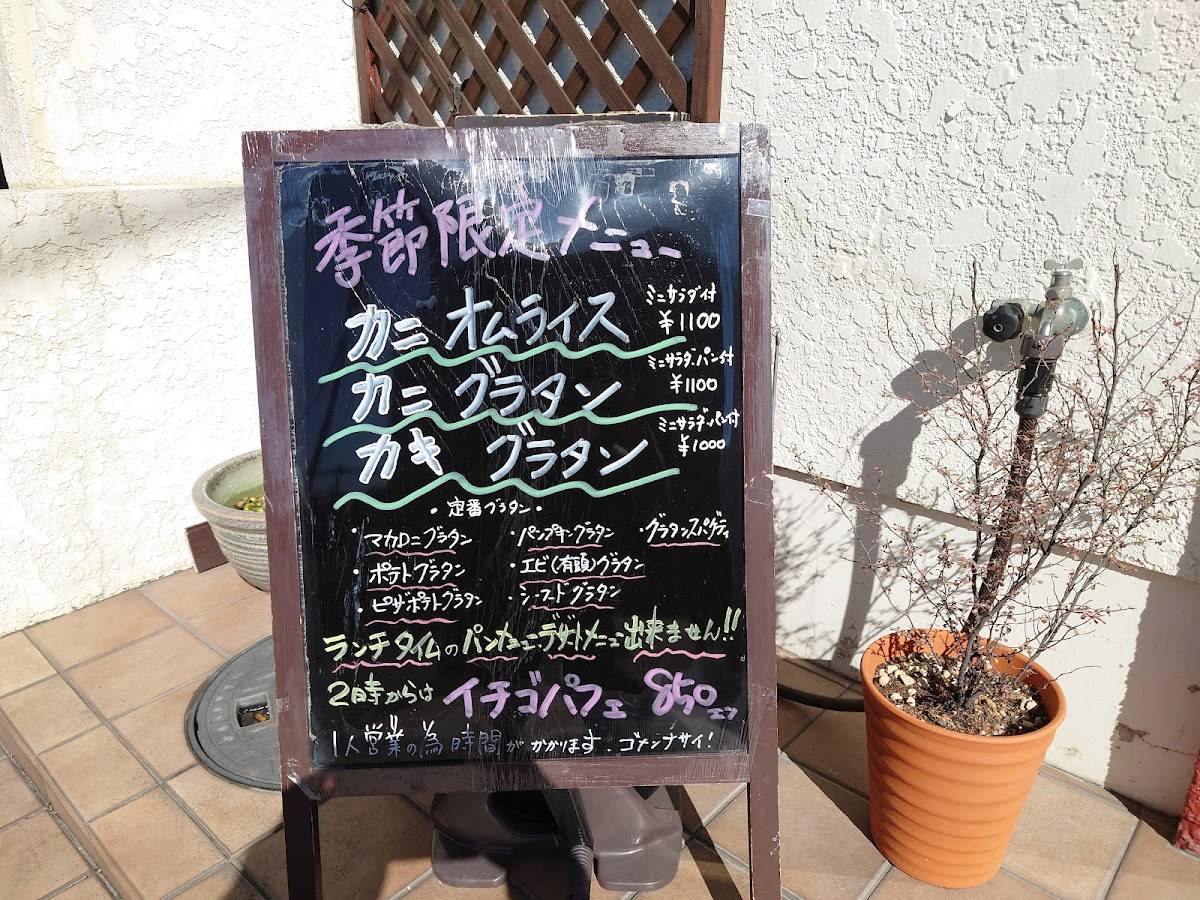 季節限定メニュー
カニ オムライス ミニサラダ付 ¥1100
カニ グラタン ミニサラダ・パン付 ¥1100
カキ グラタン ミニサラダ・パン付 ¥1000
・定番グラタン・
・マカロニグラタン ・パンプキングラタン ・グラタンスパゲティ
・ポテトグラタン ・エビ(有頭)グラタン
・ピザポテトグラタン ・シーフードグラタン
ランチタイムのパンメニュー・デザートメニュー出来ません!!
2時からは イチゴパフェ 850エン
1人営業の為時間がかかります、ゴメンナサイ!